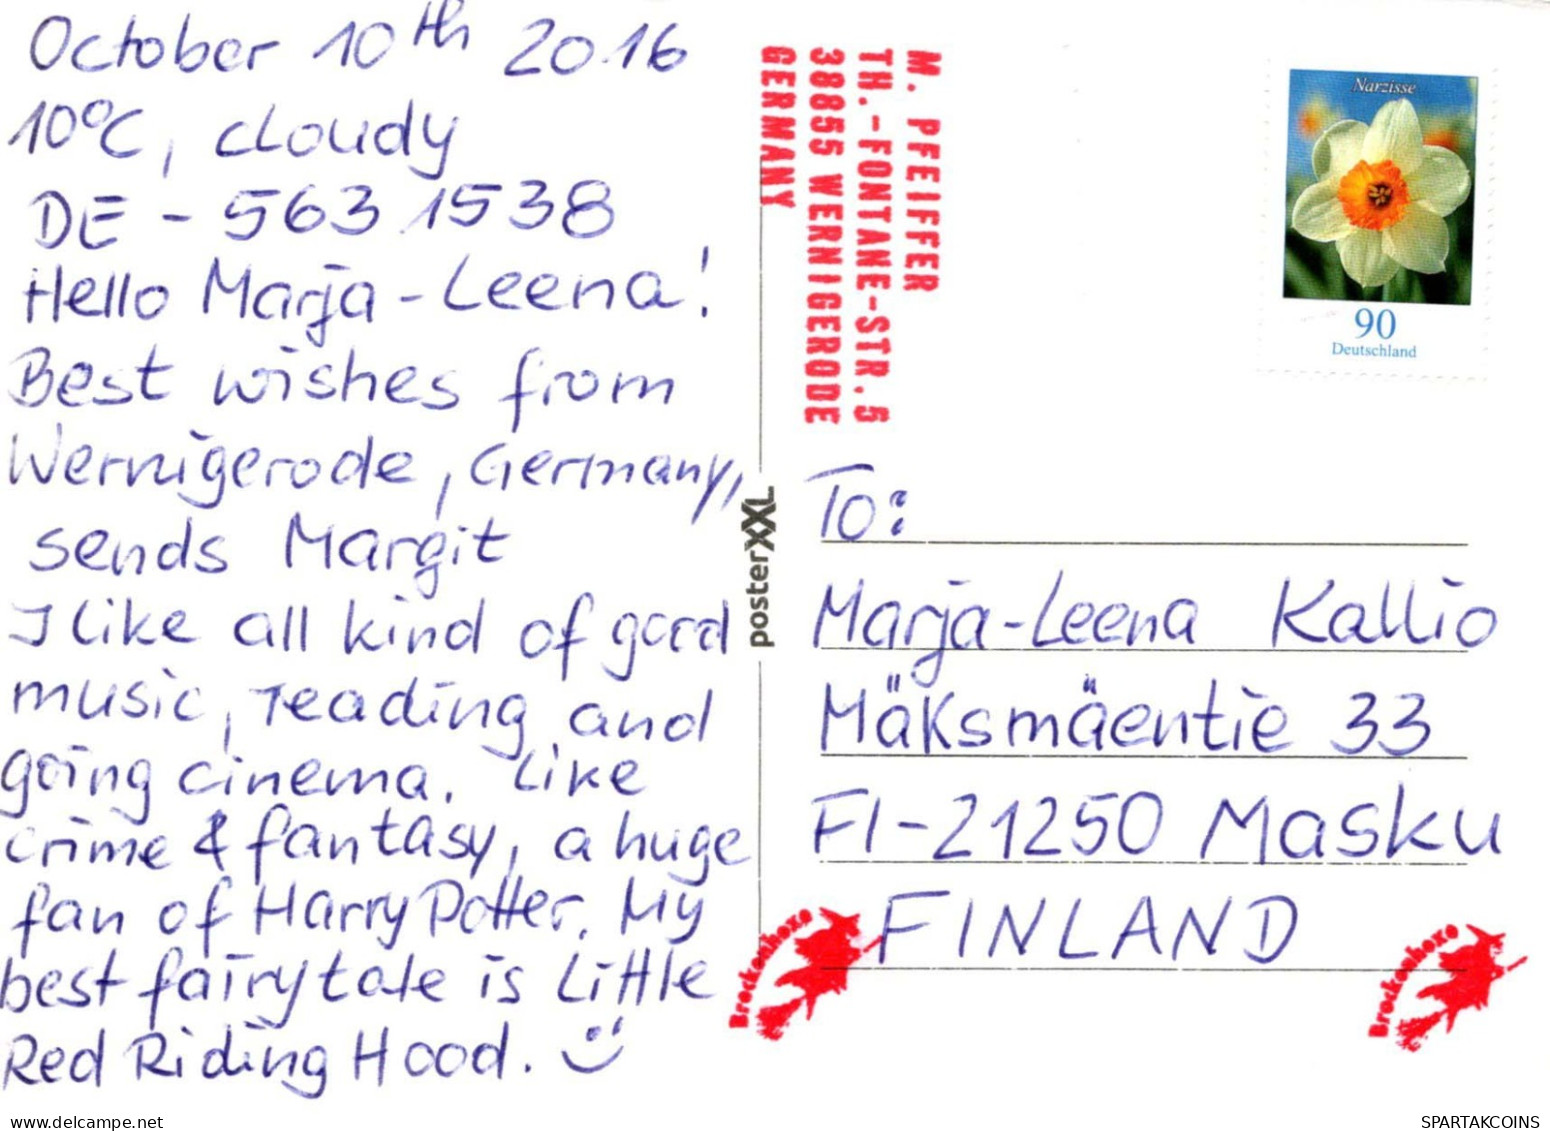 October 10th 2016
10°C, cloudy
DE - 5631538
Hello Marja-Leena!
Best wishes from
Wernigerode, Germany,
sends Margit
I like all kind of good
music, reading and
going cinema. Like
crime & fantasy, a huge
fan of Harry Potter. My
best fairytale is Little
Red Riding Hood.
M. PFEIFFER
TH.-FONTANE-STR.5
38855 WERNIGERODE
GERMANY
posterXXL
Narzisse
90
Deutschland
To:
Marja-Leena Kallio
Mäksmäentie 33
FI-21250 Masku
FINLAND
Brockenhexe
Brockenhexe
www.delcampe.net
SPARTAKCOINS